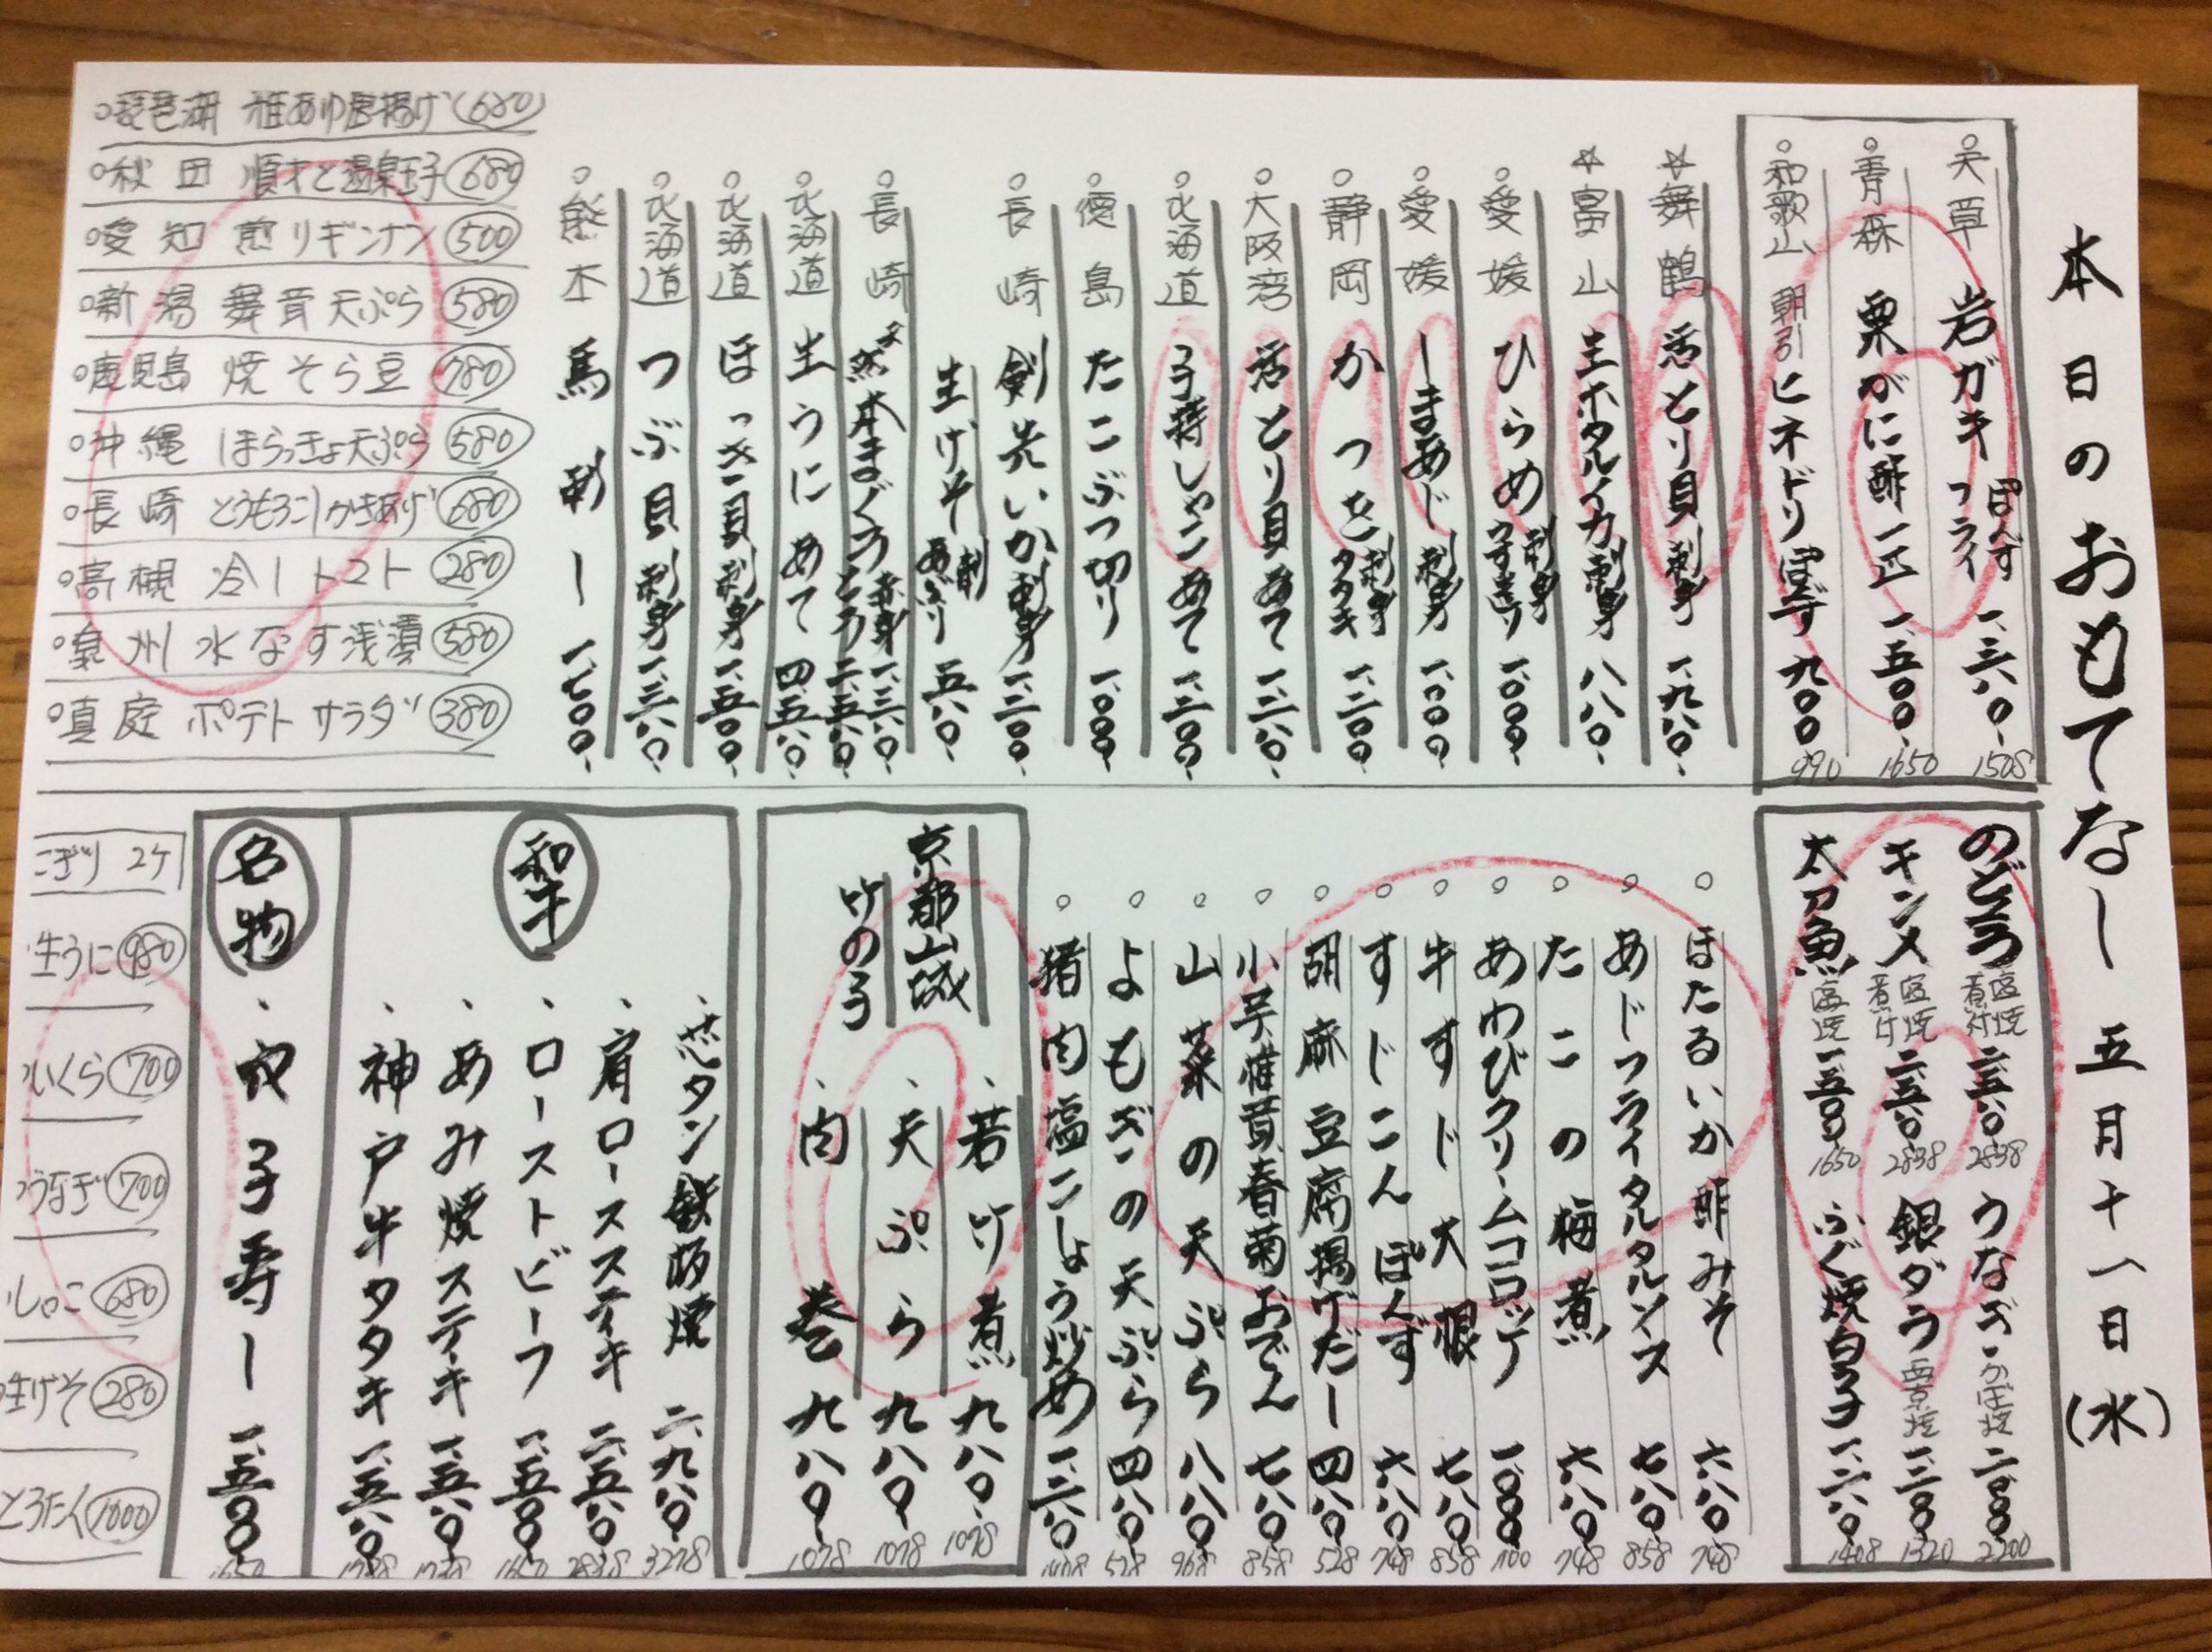 本日のおもてなし 五月十一日(水)
天草 岩ガキ ぽんず フライ 一、三八〇、 1508
青森 栗がに酢 一匹 一、五〇〇、 1650
和歌山 朝引ヒネドリぽんず 九〇〇 990
☆舞鶴 活とり貝 刺身 一、九八〇、
☆富山 生ホタルイカ 刺身 八八〇、
愛媛 ひらめ 刺身 うす造り 一、〇〇〇、
愛媛 しまあじ 刺身 一、〇〇〇
静岡 かつを 刺身 タタキ 一、二〇〇
大阪湾 活とり貝あて 一、二八〇
北海道 子持しゃこあて 一、三〇〇
徳島 たこぶつ切り 一、〇〇〇
長崎 剣先いか刺身 一、二〇〇
生げそ 刺 あぶり 五八〇、
長崎 よこわ 本まぐろ 赤身 一、三八〇 とろ 二、五八〇
北海道 生うにあて 四、五八〇
北海道 ほっき貝 刺身 一、五〇〇
北海道 つぶ貝 刺身 一、三八〇
熊本 馬刺し 一、七〇〇、
琵琶湖 稚あゆ唐揚げ 680
秋田 順才と温泉玉子 680
愛知 煎りギンナン 500
新潟 舞茸天ぷら 580
鹿児島 焼そら豆 780
沖縄 島らっきょ天ぷら 580
長崎 とうもろこしかきあげ 680
高槻 冷しトマト 280
泉州 水なす浅漬 580
真庭 ポテトサラダ 380
のどぐろ 塩焼 煮付 二、五八〇 2838 うなぎ かば焼 二、〇〇〇 2200
キンメ 塩焼 煮付 二、五八〇 2838 銀ダラ 西京焼 一、二〇〇 1320
太刀魚 塩焼 一、五〇〇 1650 ふぐ焼白子 一、二八〇 1408
ほたるいか酢みそ 六八〇、 748
あじフライタルタルソース 七八〇、 858
たこの梅煮 六八〇、 748
あわびクリームコロッケ 一、〇〇〇 1100
牛すじ大根 七八〇、 858
すじこんぽんず 六八〇、 748
胡麻豆腐揚げだし 四八〇、 528
小芋椎茸春菊おでん 七八〇、 858
山菜の天ぷら 八八〇、 968
よもぎの天ぷら 四八〇、 528
猪肉塩こしょう炒め 一、二八〇 1408
京都山城 竹の子
、若竹煮 九八〇、 1078
、天ぷら 九八〇、 1078
、肉巻 九八〇、 1078
和牛
、芯タン鉄板焼 二、九八〇、 3278
、肩ロースステーキ 二、五八〇、 2838
、ローストビーフ 一、五〇〇、 1650
、あみ焼ステーキ 一、五八〇、 1738
、神戸牛タタキ 一、五八〇、 1738
名物
、穴子寿し 一、五〇〇 1650
にぎり 2ケ
生うに 980
いくら 700
うなぎ 700
しゃこ 680
生げそ 280
とろたく 1000